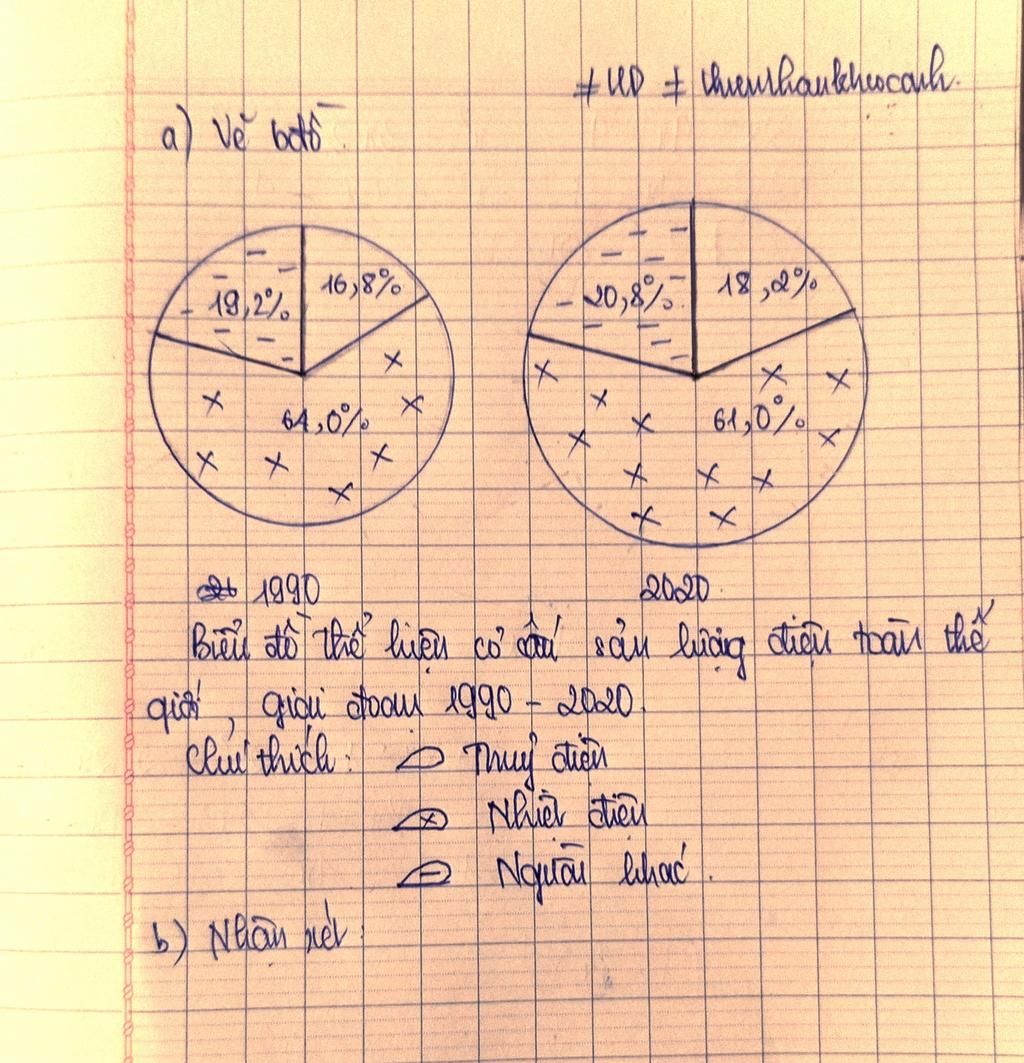 a) Vẽ bđồ
19,2% 16,8%
64,0%
20,8% 18,2%
61,0%
1990
2020
Biểu đồ thể hiện cơ cấu sản lượng điện toàn thế
giới, giai đoạn 1990 - 2020.
Chú thích: Thuỷ điện
Nhiệt điện
Nguồn khác.
b) Nhận xét: